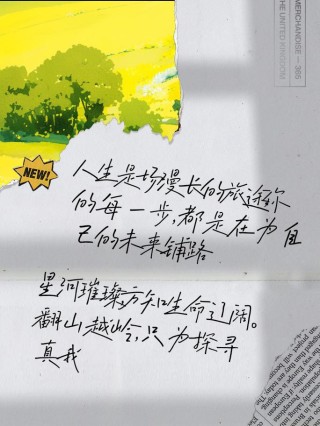 MERCHANDISE — 365
THE UNITED KINGDOM
NEW!
人生是场漫长的旅途你
的每一步,都是在为自
己的未来铺路
星河璀璨方知生命辽阔。
翻山越岭,只为探寻
真我